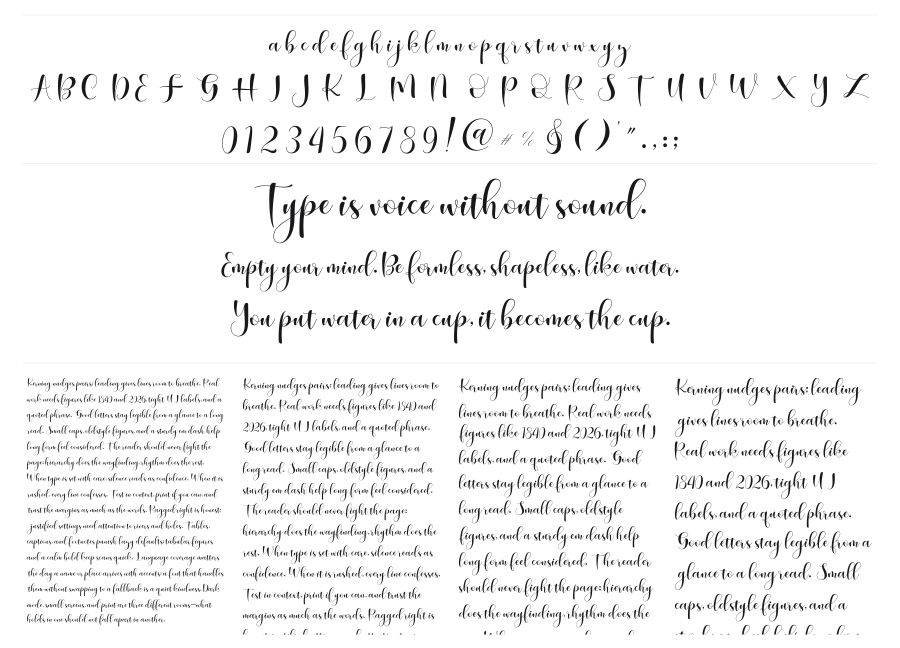 a b c d e f g h i j k l m n o p q r s t u v w x y y
A B C D E F G H I J K L M N O P Q R S T U V W X Y Z
0 1 2 3 4 5 6 7 8 9 ! @ # % & ( ) ' " . , : ;
Type is voice without sound.
Empty your mind. Be formless, shapeless, like water.
You put water in a cup, it becomes the cup.
Kerning nudges pairs; leading gives lines room to breathe. Real
work needs figures like 1840 and 2026, tight U I labels, and a
quoted phrase. Good letters stay legible from a glance to a long
read. Small caps, oldstyle figures, and a sturdy em dash help
long form feel considered. The reader should never fight the
page; hierarchy does the wayfinding, rhythm does the rest.
When type is set with care, silence reads as confidence. When it is
rushed, every line confesses. Test in context, print if you can, and
trust the margins as much as the words. Ragged right is honest;
justified settings need attention to rivers and holes. Tables,
captions, and footnotes punish lazy defaults; tabular figures
and a calm bold keep scans quick. Language coverage matters
the day a name or place arrives with accents; a font that handles
them without swapping to a fallback is a quiet kindness. Dark
mode, small screens, and print are three different rooms—what
holds in one should not fall apart in another.
Kerning nudges pairs; leading gives lines room to
breathe. Real work needs figures like 1840 and
2026, tight U I labels, and a quoted phrase.
Good letters stay legible from a glance to a
long read. Small caps, oldstyle figures, and a
sturdy em dash help long form feel considered.
The reader should never fight the page;
hierarchy does the wayfinding, rhythm does the
rest. When type is set with care, silence reads as
confidence. When it is rushed, every line confesses.
Test in context, print if you can, and trust the
margins as much as the words. Ragged right is
Kerning nudges pairs; leading gives
lines room to breathe. Real work needs
figures like 1840 and 2026, tight U I
labels, and a quoted phrase. Good
letters stay legible from a glance to a
long read. Small caps, oldstyle
figures, and a sturdy em dash help
long form feel considered. The reader
should never fight the page; hierarchy
does the wayfinding, rhythm does the
Kerning nudges pairs; leading
gives lines room to breathe.
Real work needs figures like
1840 and 2026, tight U I
labels, and a quoted phrase.
Good letters stay legible from a
glance to a long read. Small
caps, oldstyle figures, and a